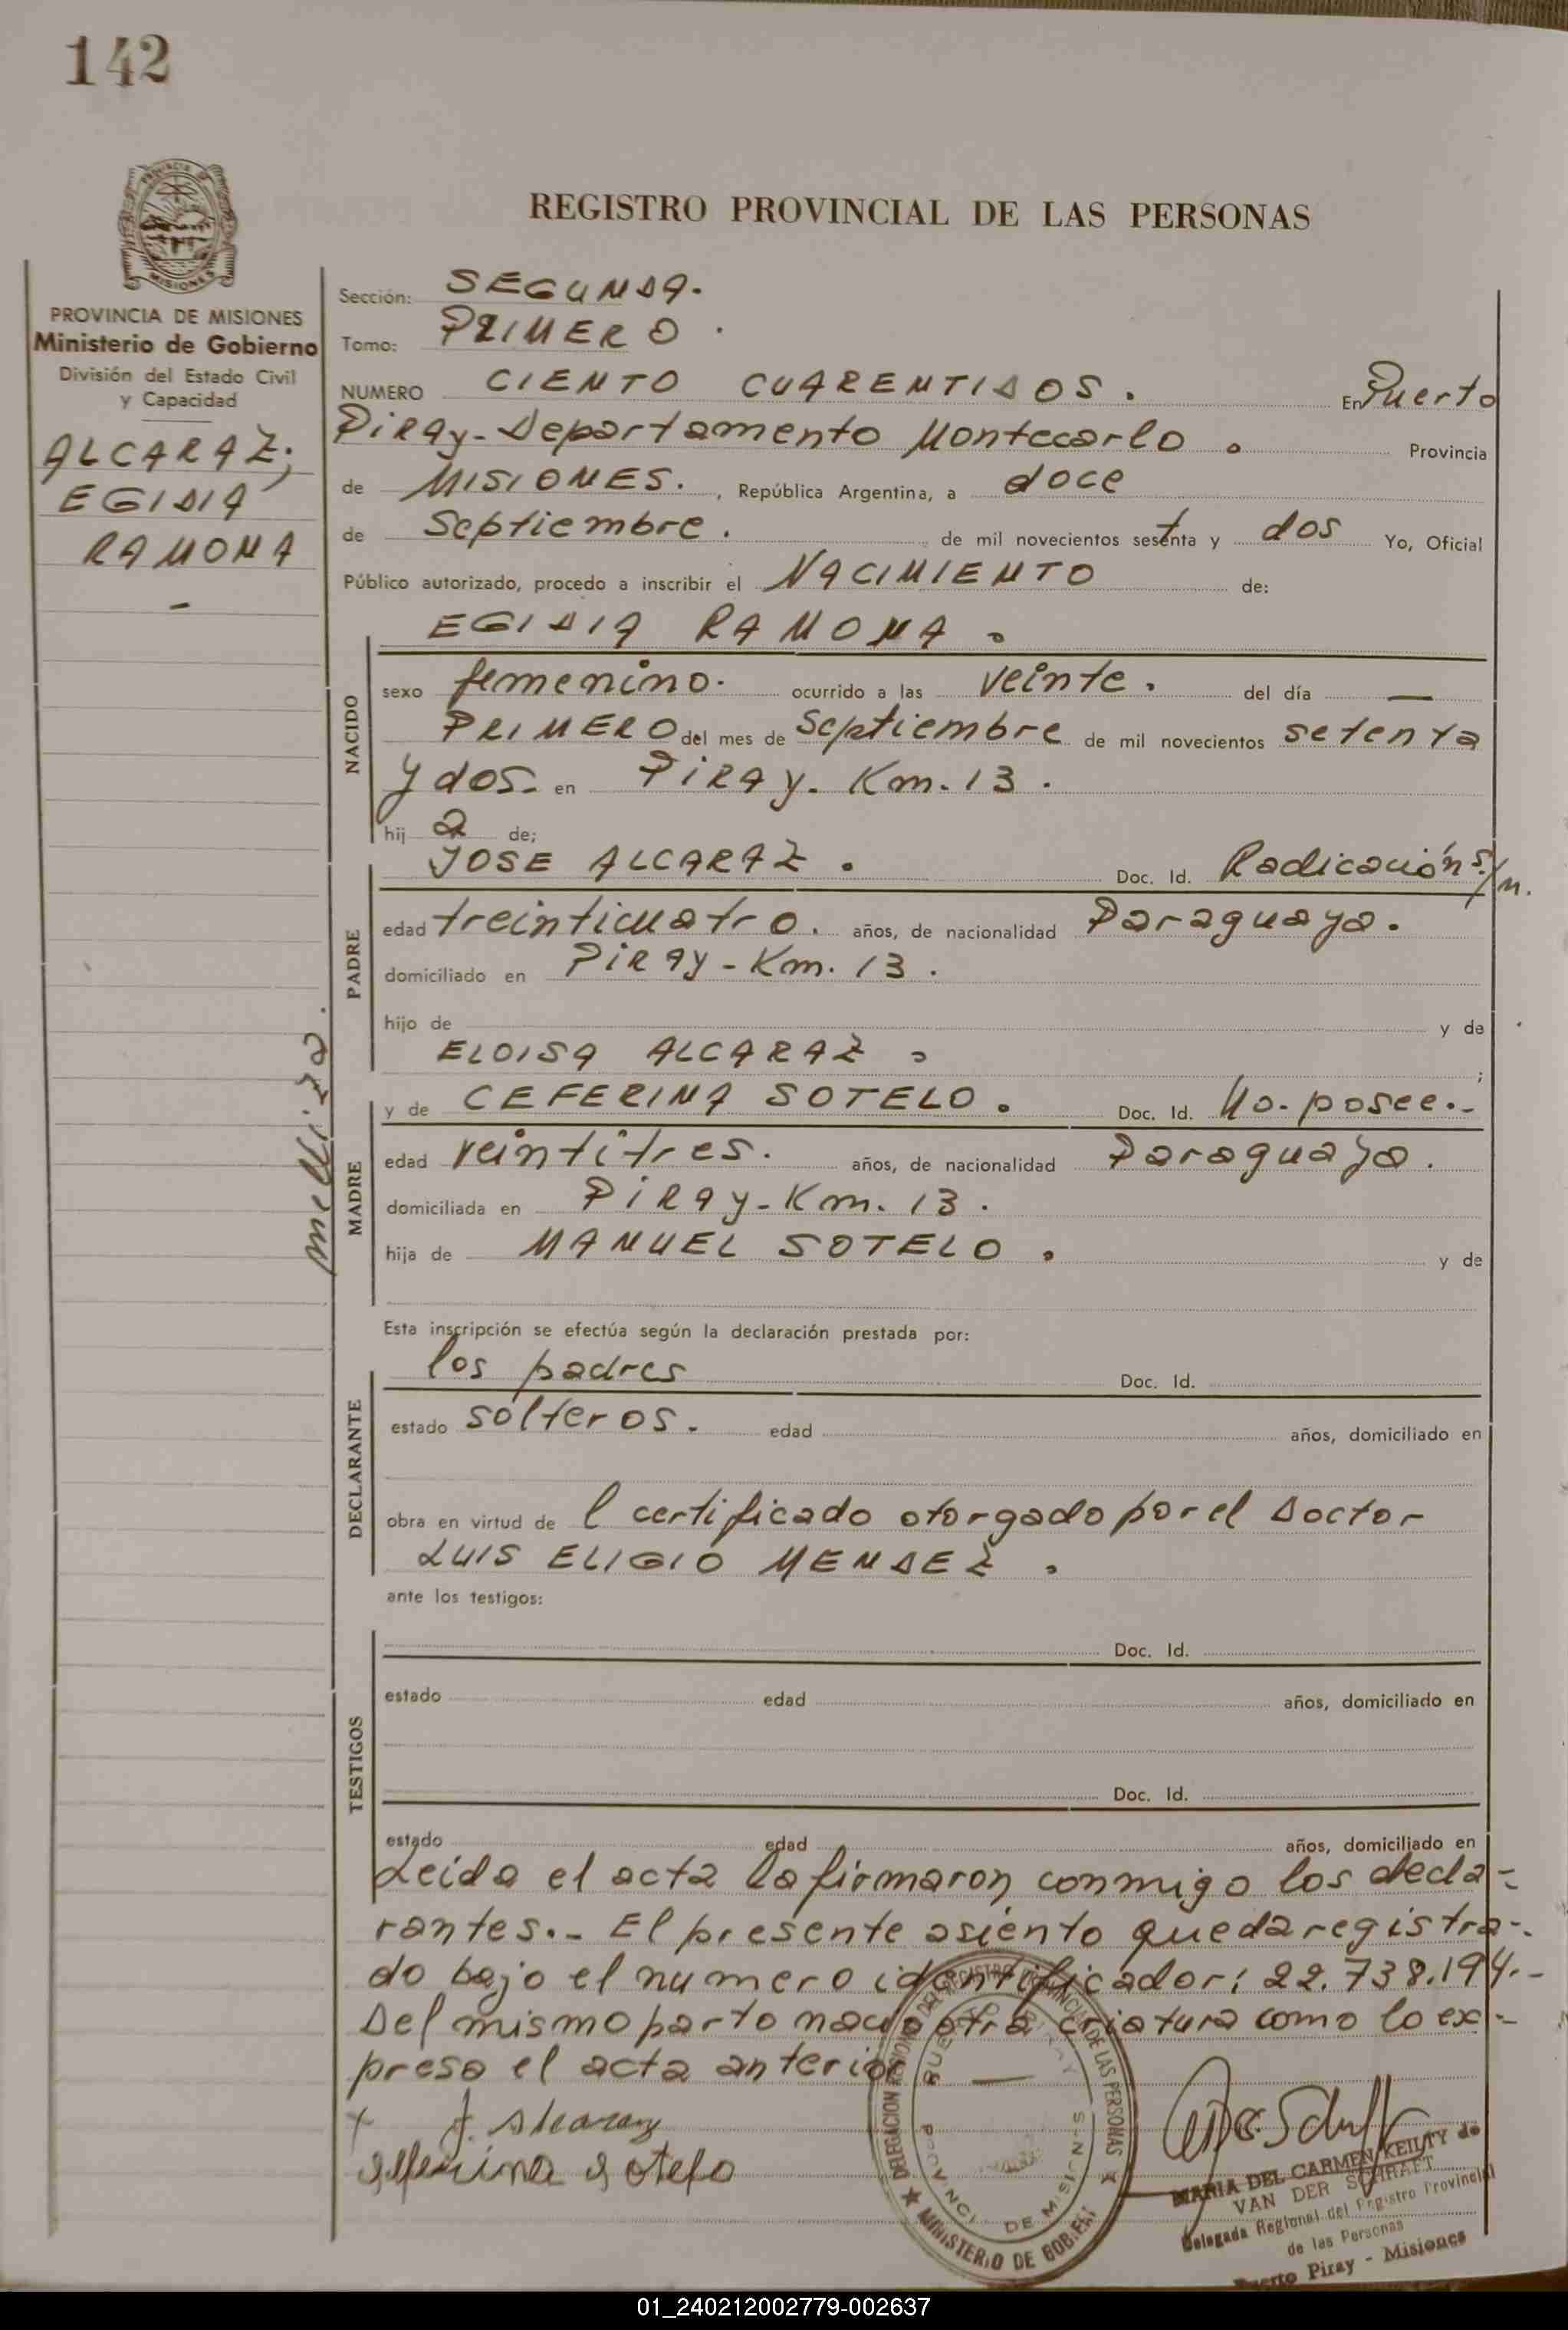 142
PROVINCIA DE MISIONES
Ministerio de Gobierno
División del Estado Civil
y Capacidad
ALCARAZ;
EGIDIA
RAMONA
-
melliza.
REGISTRO PROVINCIAL DE LAS PERSONAS
Sección: SEGUNDA.
Tomo: PRIMERO.
NUMERO CIENTO CUARENTIDOS. En Puerto
Piray-Departamento Montecarlo. Provincia
de MISIONES., República Argentina, a doce
de Septiembre. de mil novecientos setenta y dos Yo, Oficial
Público autorizado, procedo a inscribir el NACIMIENTO de:
EGIDIA RAMONA.
NACIDO
sexo femenino. ocurrido a las veinte. del día —
PRIMERO del mes de Septiembre de mil novecientos setenta
y dos. en PIRAY. Km. 13.
hij a de;
JOSE ALCARAZ. Doc. Id. Radicación s/n.
PADRE
edad treinticuatro. años, de nacionalidad Paraguaya.
domiciliado en PIRAY-Km. 13.
hijo de y de
ELOISA ALCARAZ. ;
y de CEFERINA SOTELO. Doc. Id. No-posee.-
MADRE
edad veintitres. años, de nacionalidad Paraguaya.
domiciliada en PIRAY-Km. 13.
hija de MANUEL SOTELO. y de
Esta inscripción se efectúa según la declaración prestada por:
los padres Doc. Id.
DECLARANTE
estado solteros. edad años, domiciliado en
obra en virtud de l certificado otorgado por el Doctor
LUIS ELIGIO MENDEZ.
ante los testigos:
Doc. Id.
TESTIGOS
estado edad años, domiciliado en
Doc. Id.
estado edad años, domiciliado en
Leida el acta la firmaron conmigo los decla-
rantes.- El presente asiento queda registra-
do bajo el numero identificador: 22.738.194.-
Del mismo parto nacio otra criatura como lo ex-
presa el acta anterior —
Seferina Sotelo
DELEGACION REGIONAL DEL REGISTRO PROVINCIAL DE LAS PERSONAS
MINISTERIO DE GOBIERNO
PUERTO PIRAY
PROVINCIA DE MISIONES
MARIA DEL CARMEN KEILTY de
VAN DER SCHRAFT
Delegada Regional del Registro Provincial
de las Personas
Puerto Piray - Misiones
01_240212002779-002637